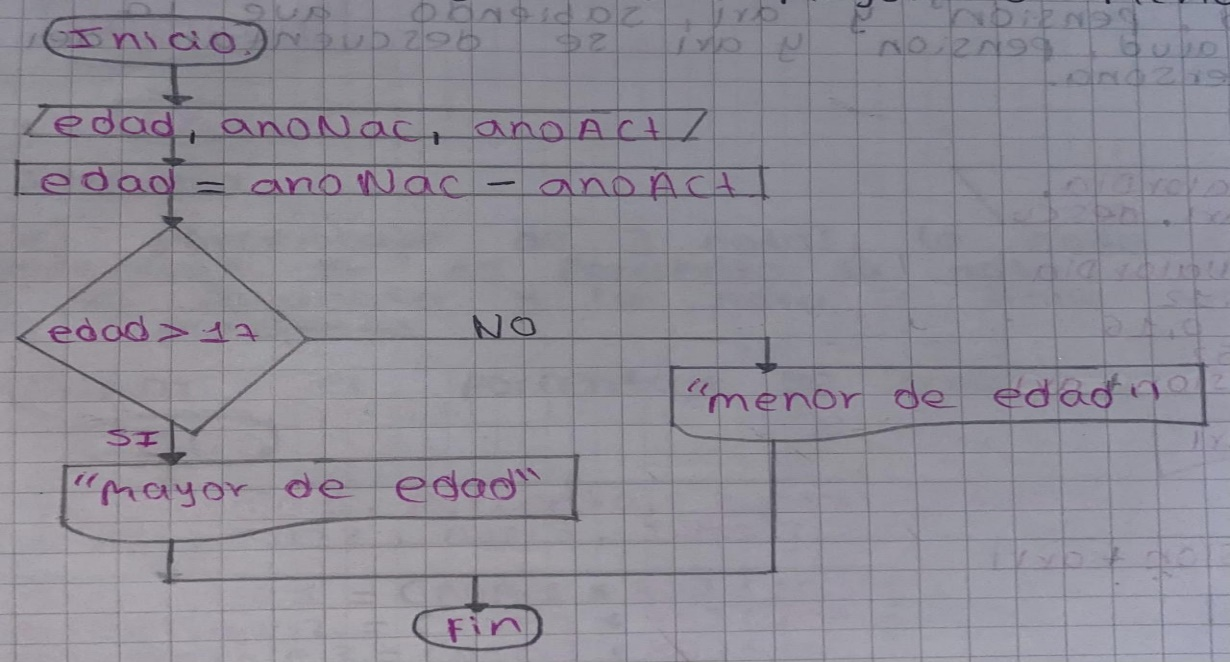 Inicio
edad, anoNac, anoAct
edad = anoNac - anoAct
edad > 17
NO
"menor de edad"
SI
"mayor de edad"
Fin